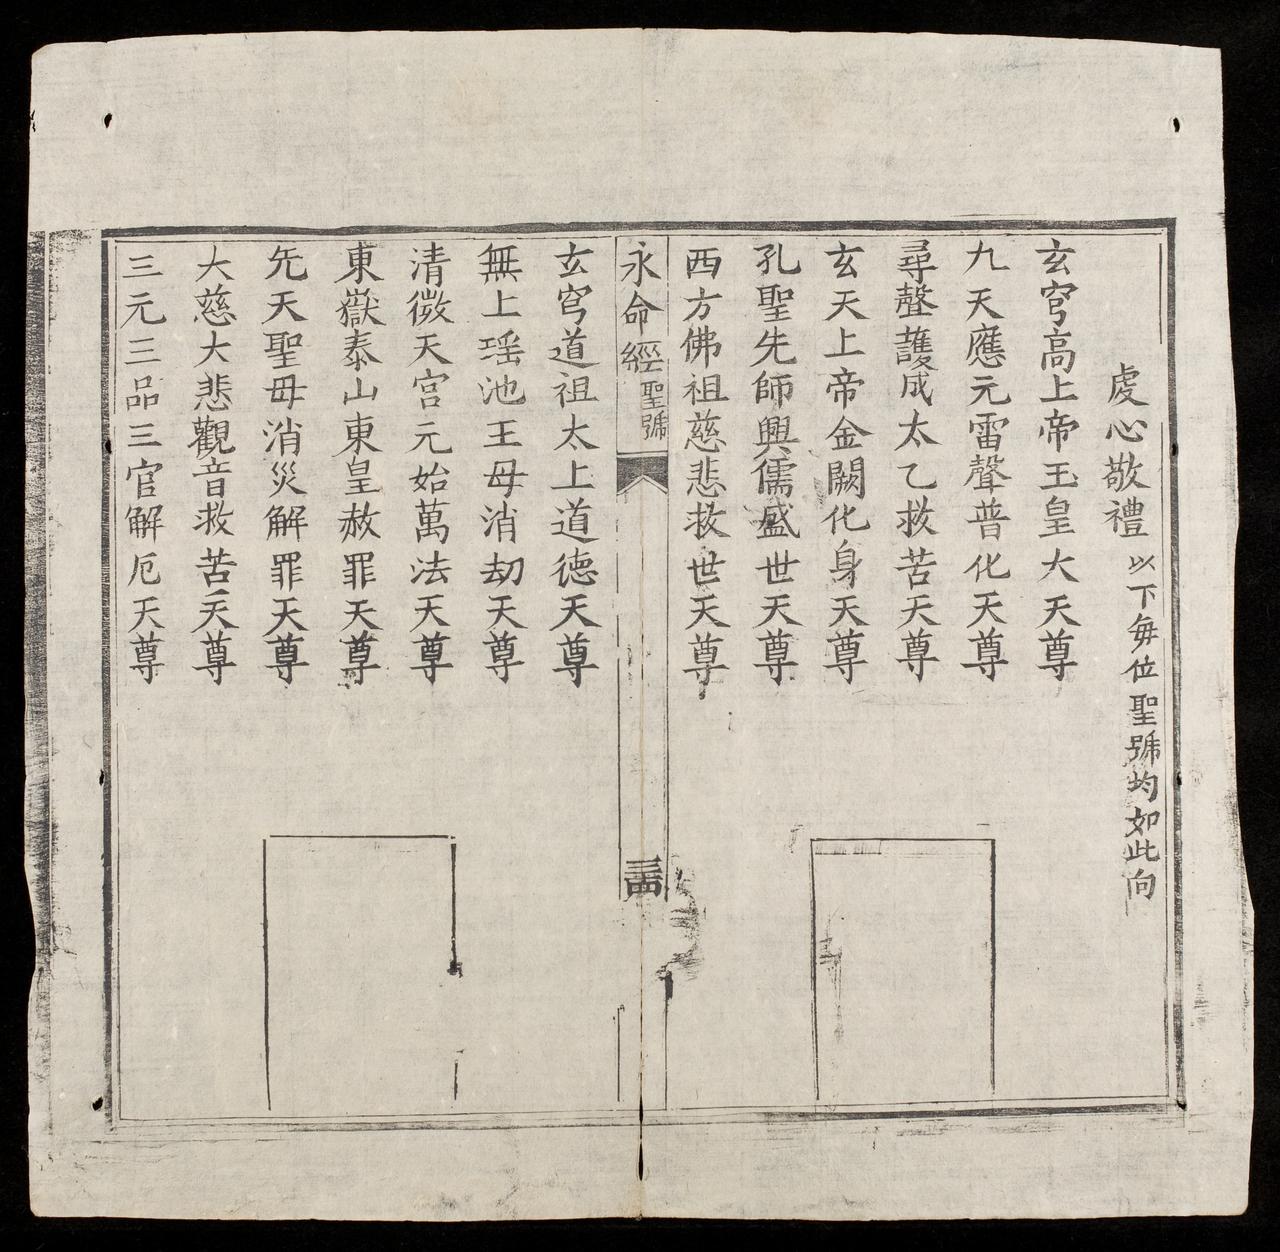 虔心敬禮 以下每位聖號均如此向
玄穹高上帝玉皇大天尊
九天應元雷聲普化天尊
尋聲護成太乙救苦天尊
玄天上帝金闕化身天尊
孔聖先師興儒盛世天尊
西方佛祖慈悲救世天尊
永命經 聖號
玄穹道祖太上道德天尊
無上瑤池王母消劫天尊
清微天宮元始萬法天尊
東嶽泰山東皇赦罪天尊
先天聖母消災解罪天尊
大慈大悲觀音救苦天尊
三元三品三官解厄天尊